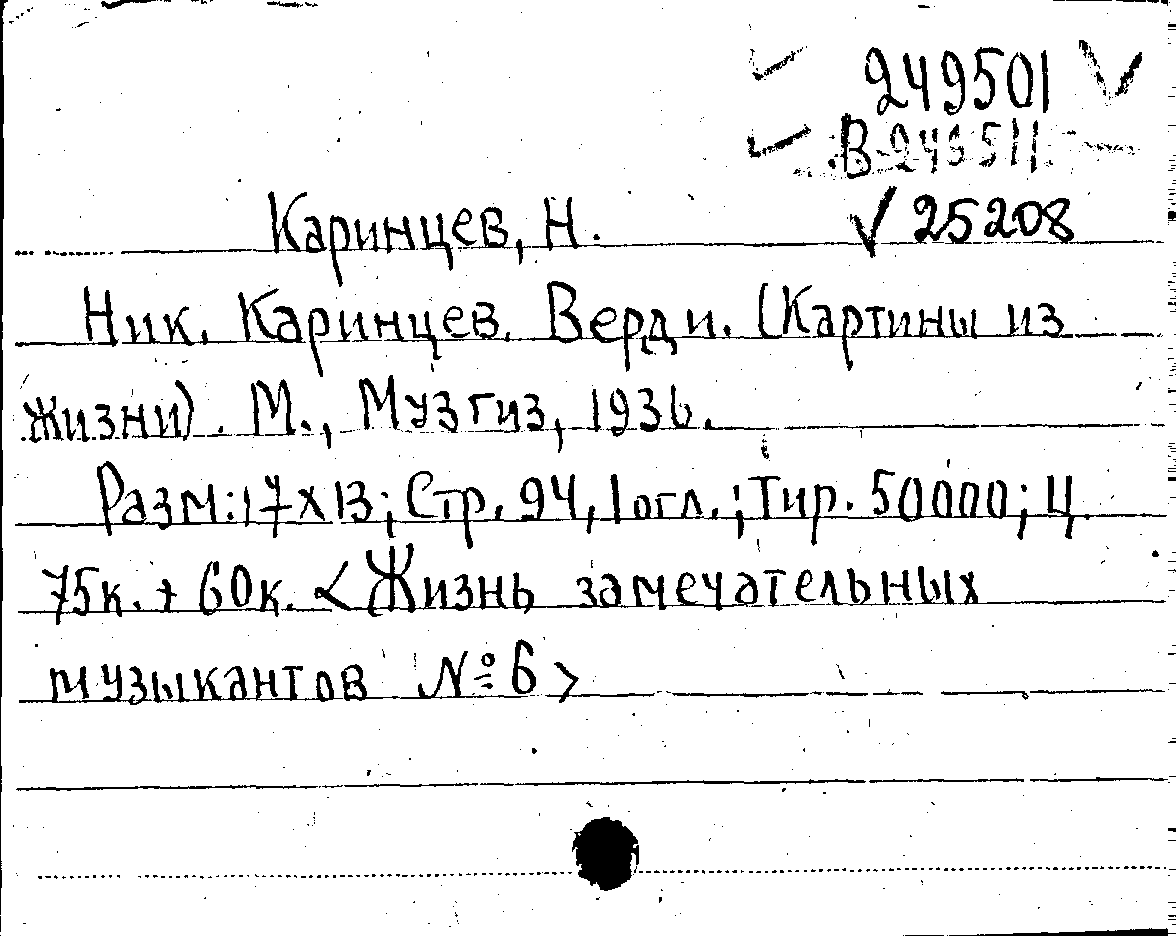 249501
В 249511
25208
Каринцев, Н.
Ник. Каринцев. Верди. (Картины из
жизни). М., Музгиз, 1936.
Разм: 17х13; Стр. 94, 1 огл.; Тир. 50000; Ц.
75к. + 60к. <Жизнь замечательных
музыкантов № 6>